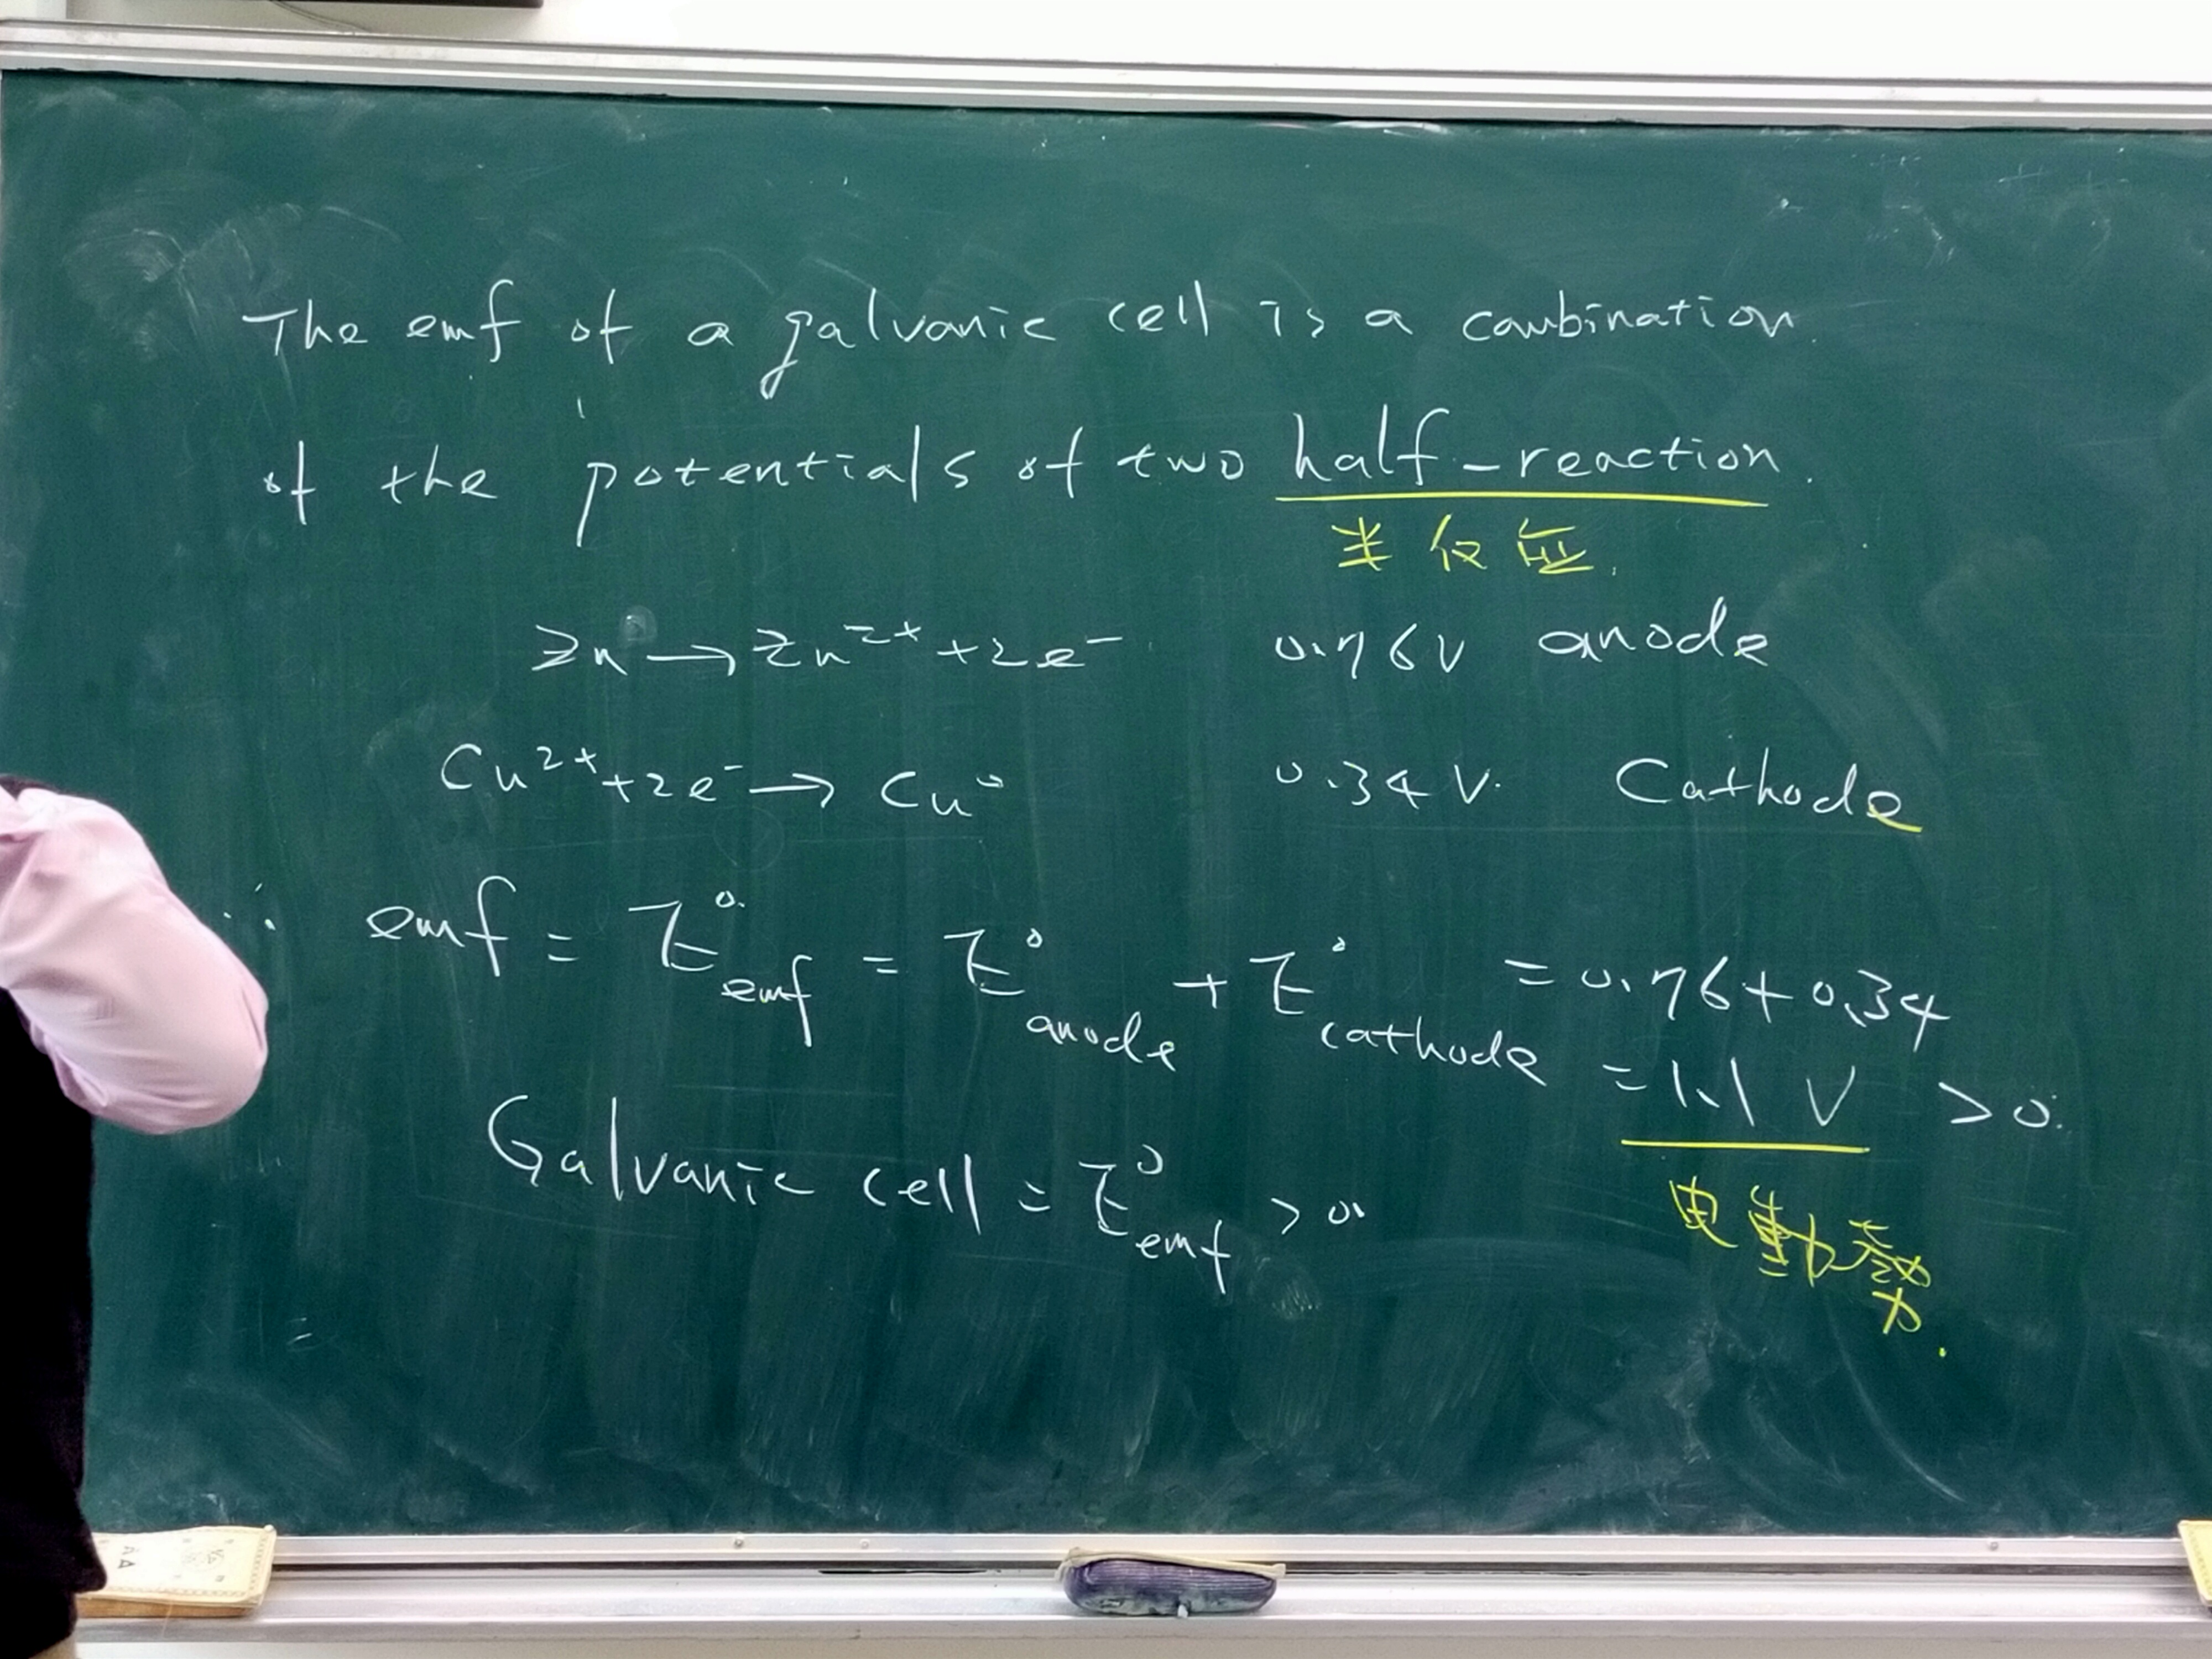 The emf of a galvanic cell is a combination
of the potentials of two half-reaction.
半反应
Zn → Zn²⁺ + 2e⁻ 0.76V anode
Cu²⁺ + 2e⁻ → Cu⁰ 0.34 V. Cathode
∴ emf = E°emf = E°anode + E°cathode = 0.76 + 0.34
= 1.1 V > 0.
Galvanic cell = E°emf > 0.
电動势